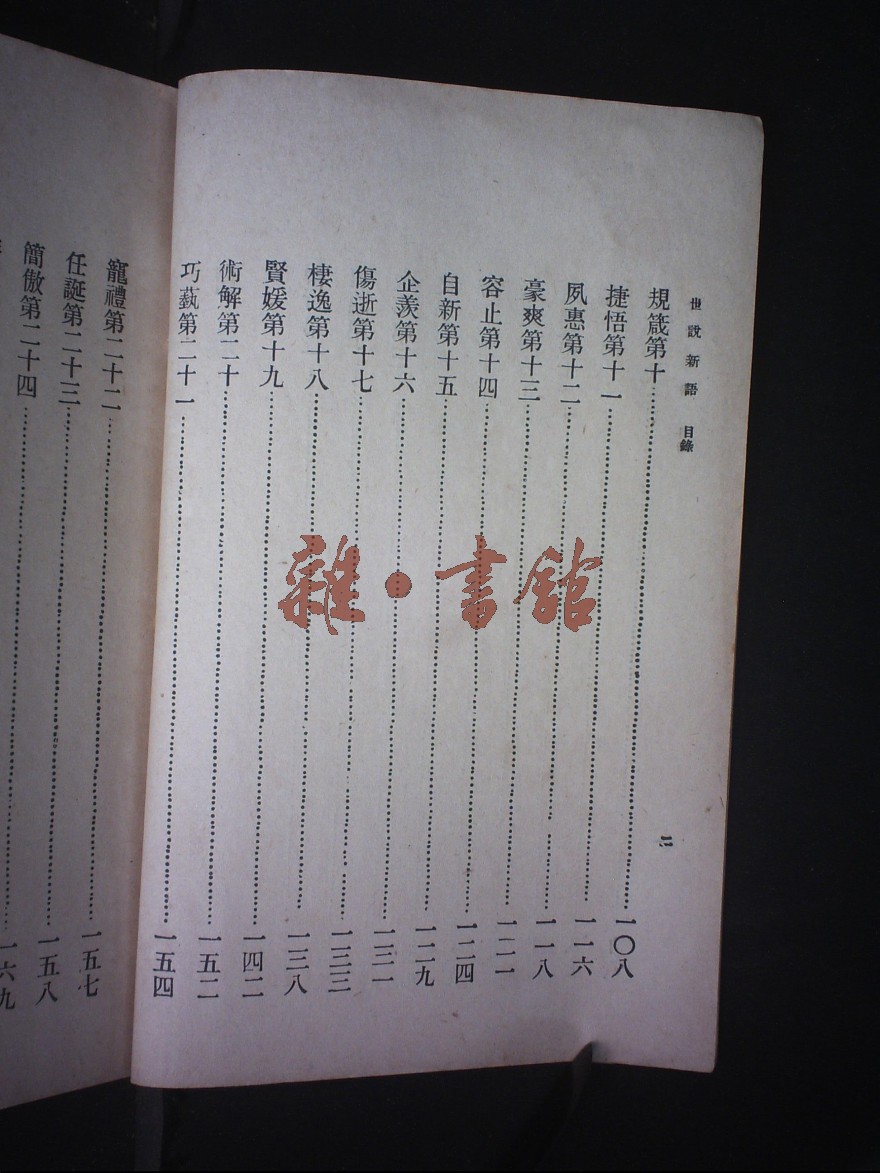 世說新語 目錄
規箴第十……一〇八
捷悟第十一……一一六
夙惠第十二……一一八
豪爽第十三……一二一
容止第十四……一二四
自新第十五……一二九
企羨第十六……一三一
傷逝第十七……一三三
棲逸第十八……一三八
賢媛第十九……一四二
術解第二十……一五二
巧藝第二十一……一五四
寵禮第二十二……一五七
任誕第二十三……一五八
簡傲第二十四……一六九
雜·書館